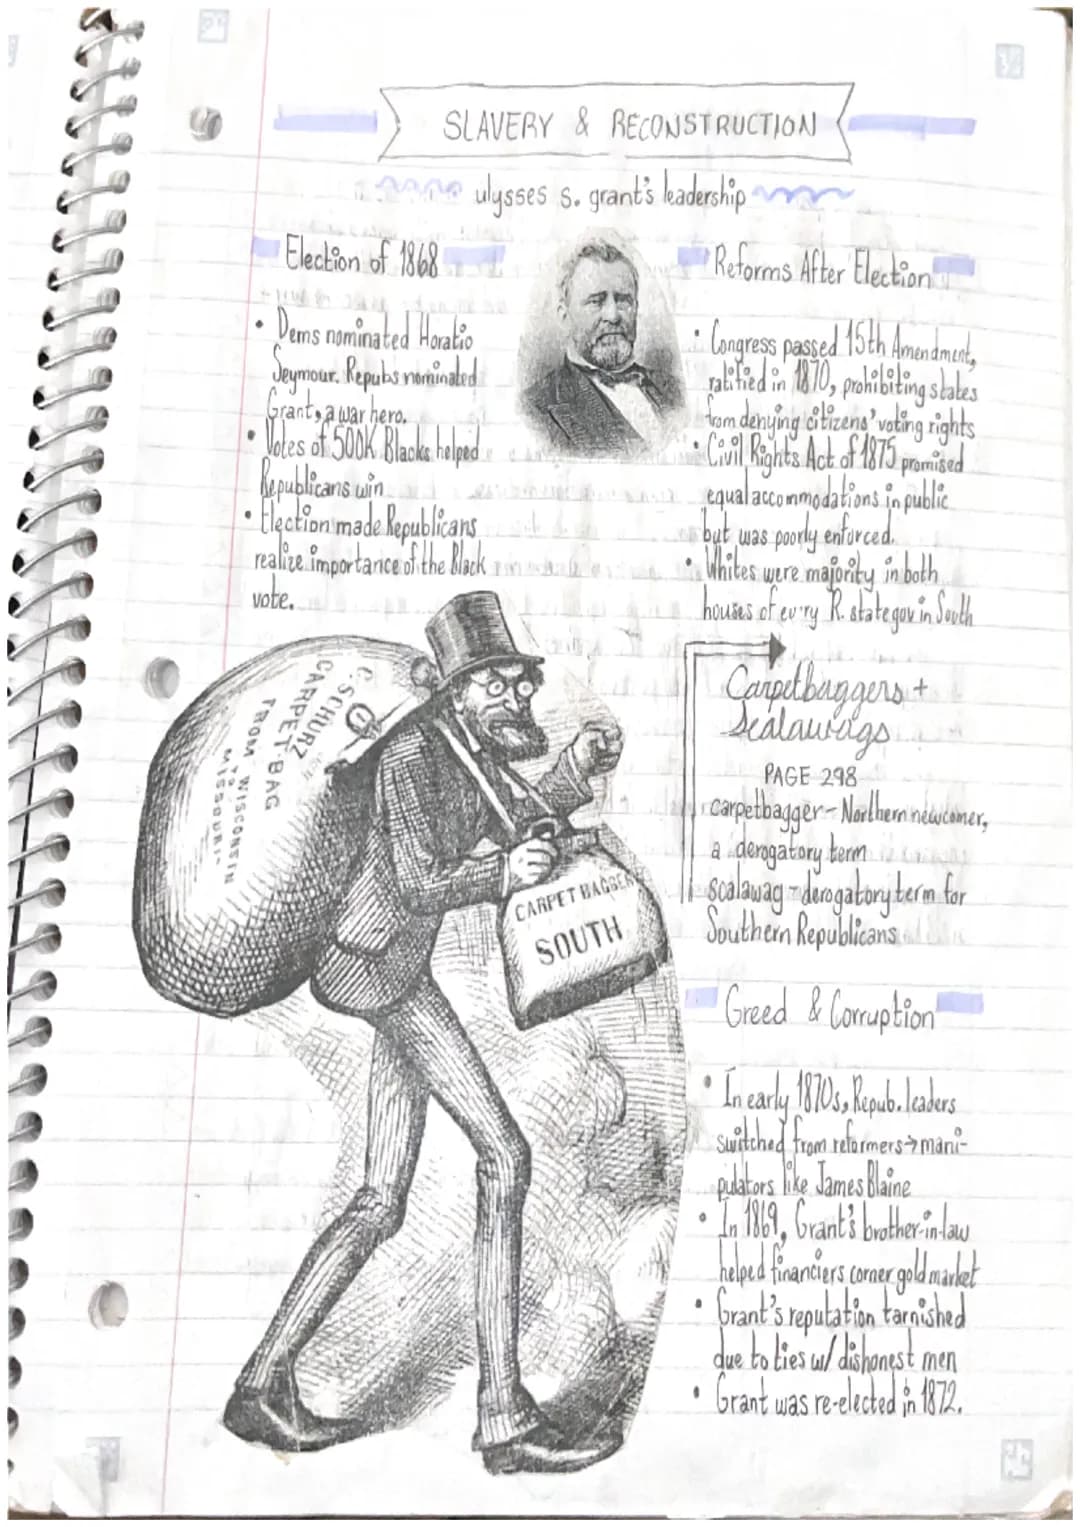 SLAVERY & RECONSTRUCTION
ulysses s. grant's leadership
Election of 1868
• Dems nominated Horatio
Seymour. Repubs nominated
Grant, a war hero.
• Votes of 500K Blacks helped
Republicans win
• Election made Republicans
realize importance of the Black
vote.
Reforms After Election
• Congress passed 15th Amendment,
ratified in 1870, prohibiting states
from denying citizens' voting rights
• Civil Rights Act of 1875 promised
equal accommodations in public
but was poorly enforced.
• Whites were majority in both
houses of every R. state gov in South
C. SCHURZ
CARPET-BAG
FROM WISCONSIN
TO
MISSOURI
CARPET BAGGER
SOUTH
Carpetbaggers +
Scalawags
PAGE 298
carpetbagger - Northern newcomer,
a derogatory term
scalawag - derogatory term for
Southern Republicans
Greed & Corruption
• In early 1870s, Repub. leaders
switched from reformers → mani-
pulators like James Blaine
• In 1869, Grant's brother-in-law
helped financiers corner gold market
• Grant's reputation tarnished
due to ties w/ dishonest men
• Grant was re-elected in 1872.